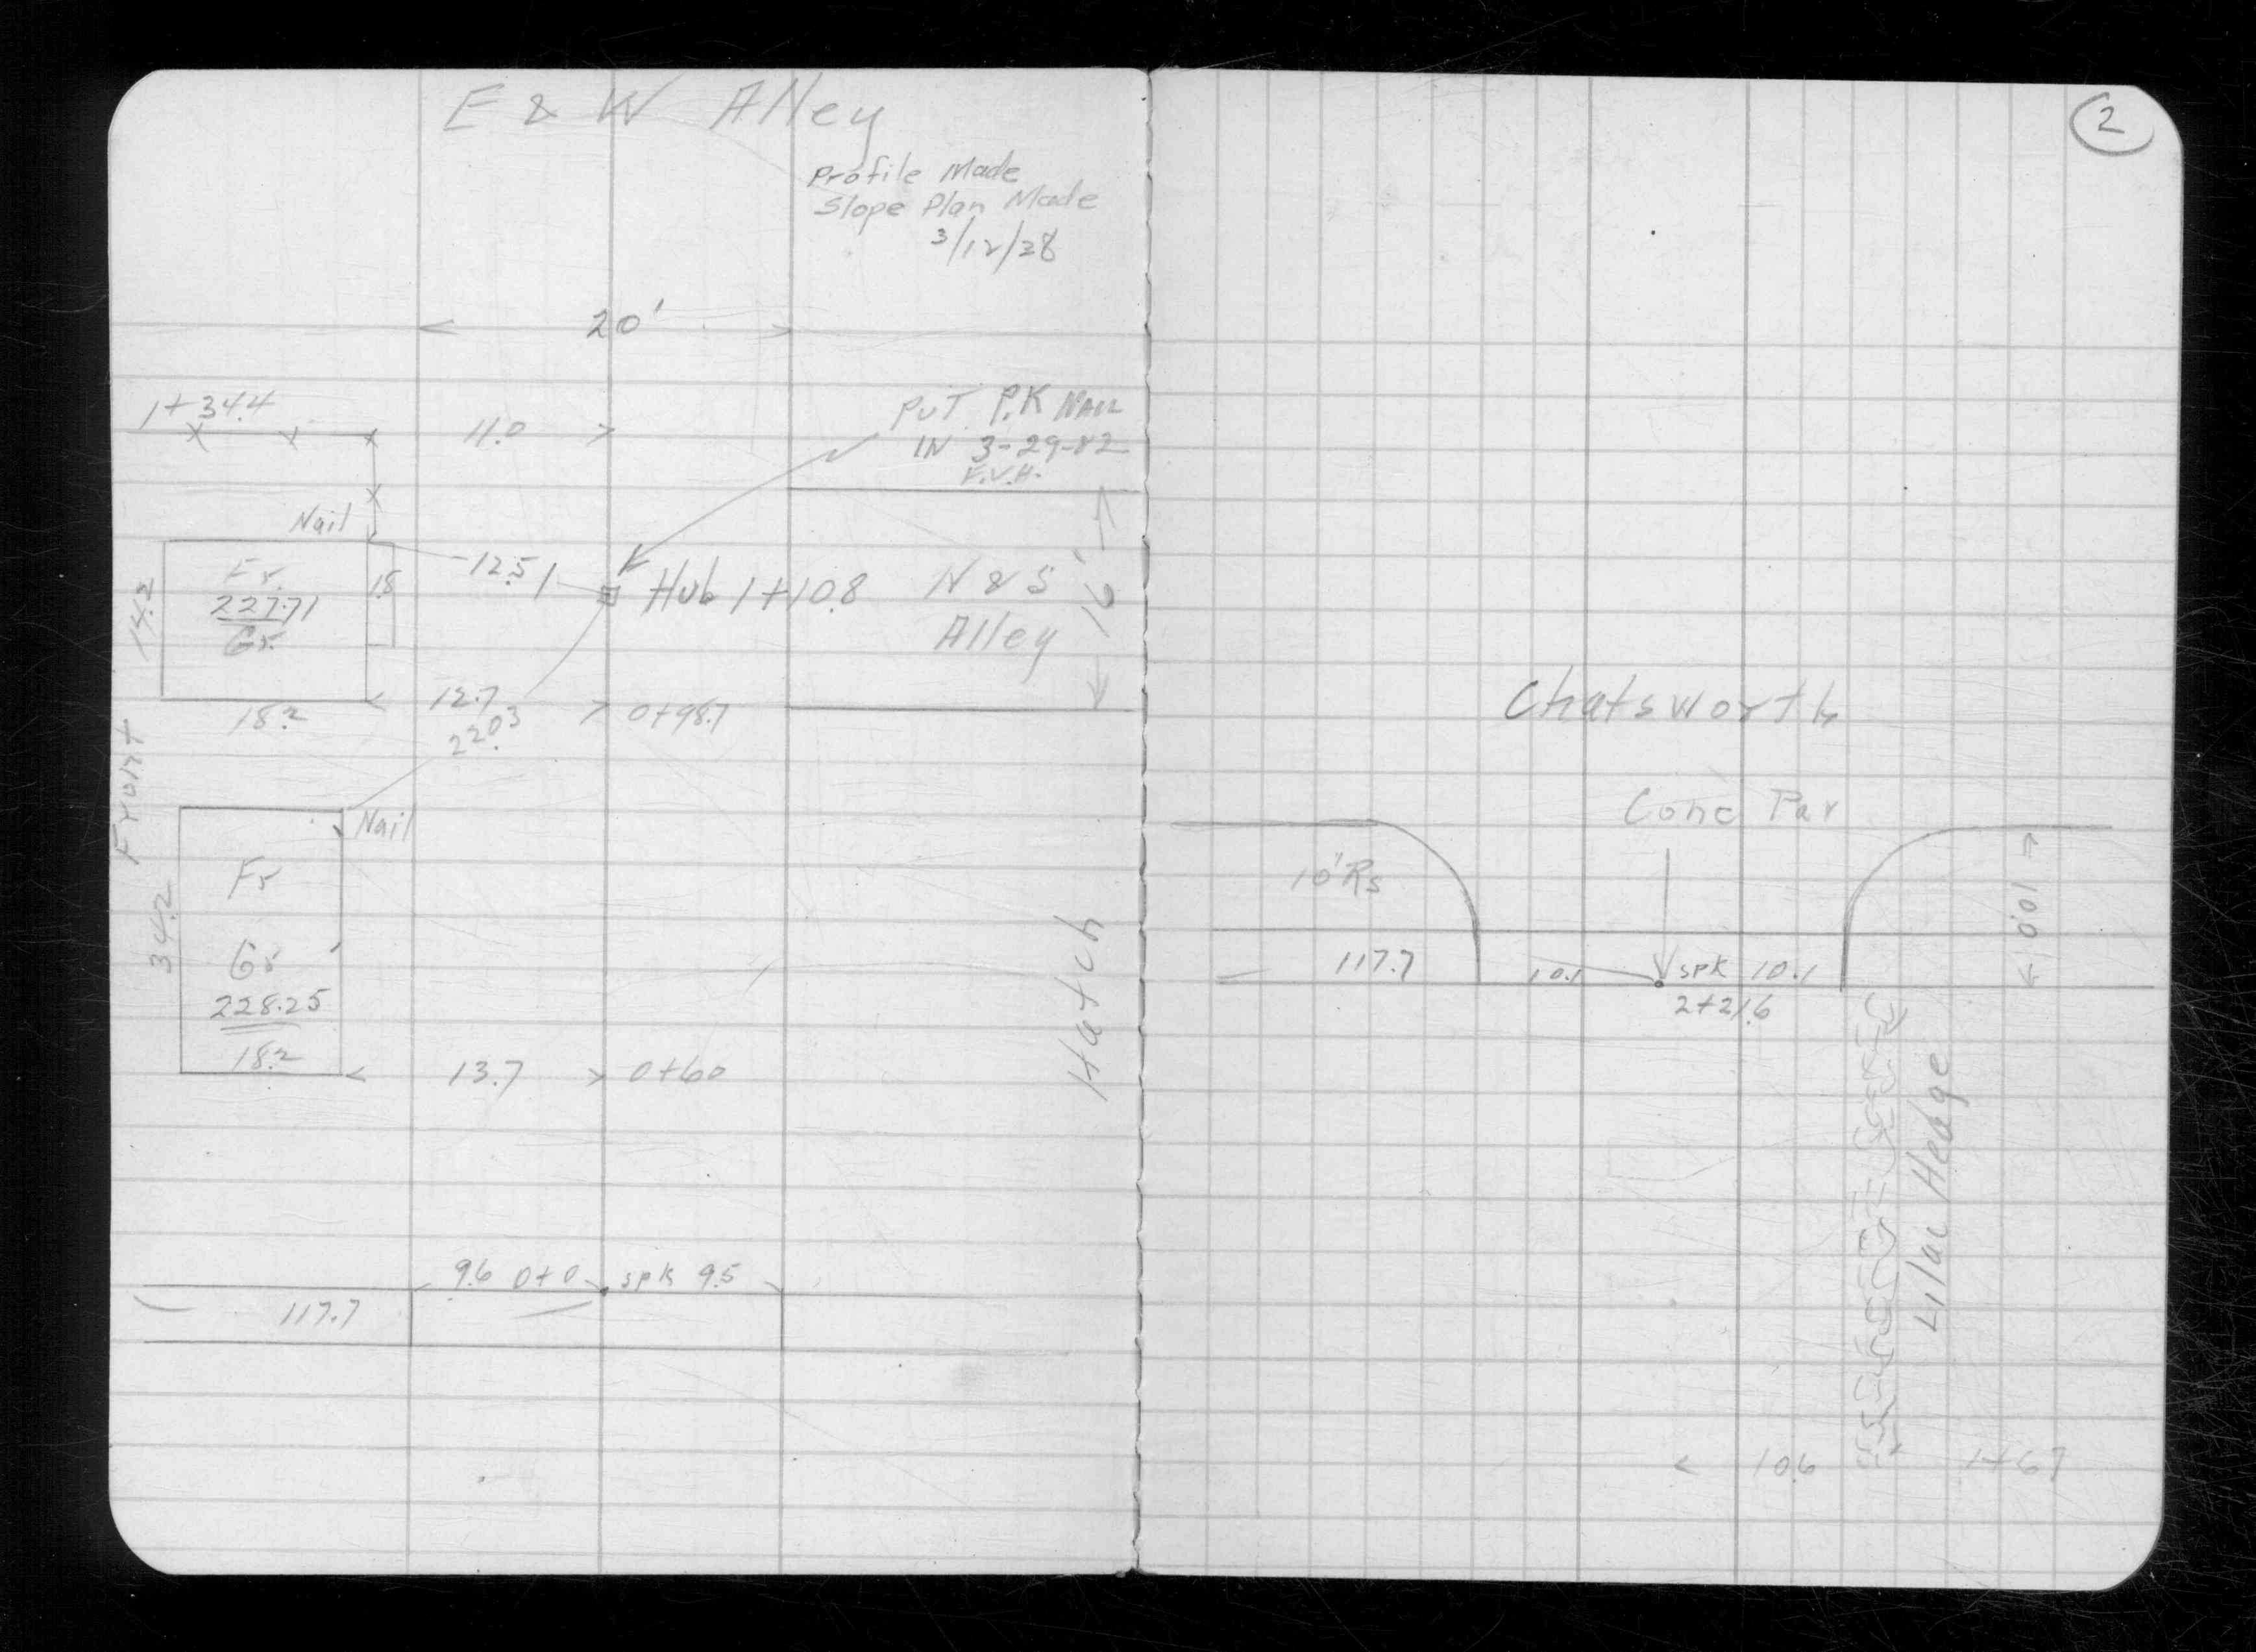 E & W Alley
Profile Made
Slope Plan Made
3/12/38
20'
1+34.4
11.0
PUT P.K NAIL
IN 3-29-82
F.V.H.
Nail
Fr.
227.71
Gr.
14.2
1.8
12.51
Hub 1+10.8
N & S
Alley
16'
18.2
12.7
0+98.7
22.03
Front
Nail
Fr
Gr
228.25
18.2
34.2
13.7
0+60
Hatch
9.6 0+0 spk 9.5
117.7
2
Chatsworth
Conc Par
10' Rs
10.0
117.7
10.1
spk 10.1
2+21.6
Lilac Hedge
10.6
1+67